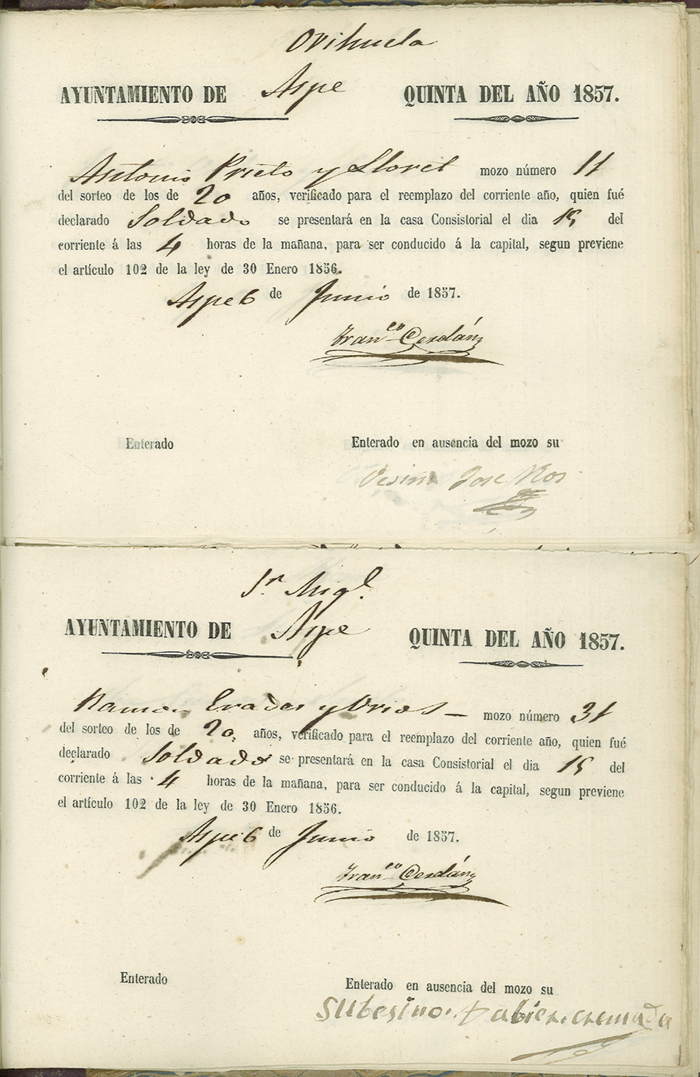 Orihuela
AYUNTAMIENTO DE Aspe QUINTA DEL AÑO 1857.
Antonio Prieto y Lloret mozo número 11
del sorteo de los de 20 años, verificado para el reemplazo del corriente año, quien fué
declarado Soldado se presentará en la casa Consistorial el dia 15 del
corriente á las 4 horas de la mañana, para ser conducido á la capital, segun previene
el artículo 102 de la ley de 30 Enero 1856.
Aspe 6 de Junio de 1857.
Fran.co Cerdán
Enterado Enterado en ausencia del mozo su
Vesino Jose Ros
Sn Migl.
AYUNTAMIENTO DE Aspe QUINTA DEL AÑO 1857.
Ramon Erades y mozo número 31
del sorteo de los de 20, años, verificado para el reemplazo del corriente año, quien fué
declarado Soldado se presentará en la casa Consistorial el dia 15 del
corriente á las 4 horas de la mañana, para ser conducido á la capital, segun previene
el artículo 102 de la ley de 30 Enero 1856.
Aspe 6 de Junio de 1857.
Fran.co Cerdán
Enterado Enterado en ausencia del mozo su
subesino